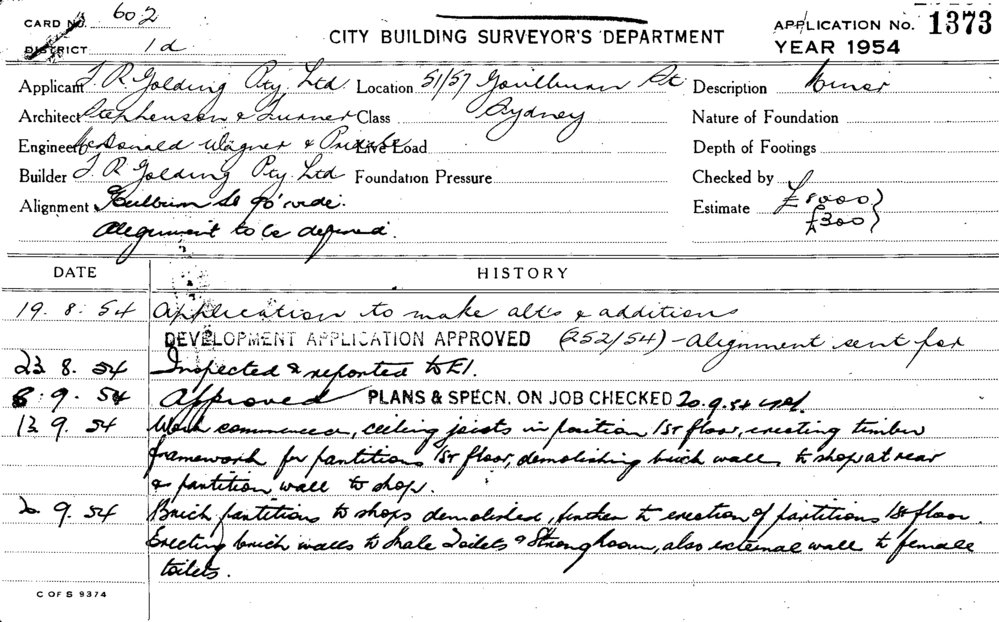 CARD No. 602
DISTRICT 1d
CITY BUILDING SURVEYOR'S DEPARTMENT
APPLICATION No. 1373
YEAR 1954
Applicant T. R. Golding Pty. Ltd. Location 51/57 Goulburn St Description Minor
Architect Stephenson & Turner Class Sydney Nature of Foundation
Engineer McDonald Wagner & Priddle Live Load Depth of Footings
Builder T. R. Golding Pty. Ltd Foundation Pressure Checked by
Alignment Goulburn St 90' wide. Estimate £8000 }
Alignment to be defined. £300 }
DATE HISTORY
19. 8. 54 Application to make alts & additions
DEVELOPMENT APPLICATION APPROVED (252/54) - Alignment sent for
23. 8. 54 Inspected & reported to E1.
8. 9. 54 Approved PLANS & SPECN. ON JOB CHECKED 20.9.54
13. 9. 54 Work commenced, ceiling joists in position 1st floor, erecting timber
framework for partitions 1st floor, demolishing brick wall to shop at rear
& partition wall to shop.
20. 9. 54 Brick partitions to shops demolished, further to erection of partitions 1st floor.
Erecting brick walls to Male Toilets & Strong Room, also external wall to female
toilets.
C OF S 9374